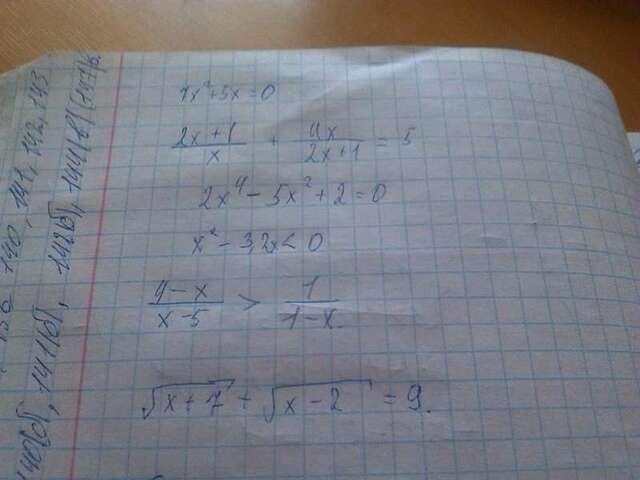 7x²+5x=0
(2x+1)/x + 4x/(2x+1) = 5
2x⁴-5x²+2=0
x²-3,2x<0
(4-x)/(x-5) > 1/(1-x)
√(x+7) + √(x-2) = 9.
140, 141, 142, 143
141(б), 142(б), 144(в)(147)